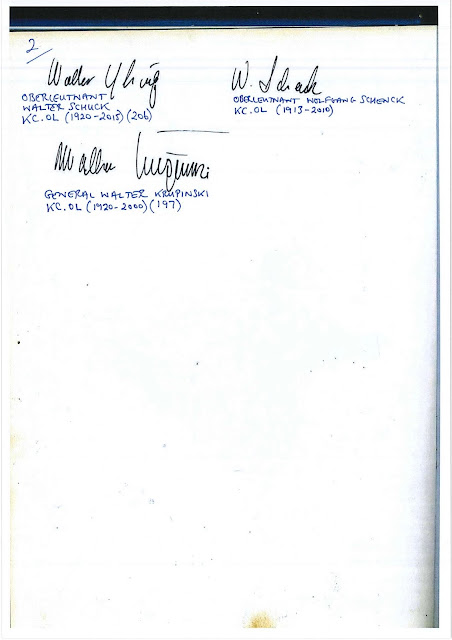 2/
Walter Schuck
OBERLEUTNANT
WALTER SCHUCK
KC.OL (1920-2015) (206)
W. Schenck
OBERLEUTNANT WOLFGANG SCHENCK
KC.OL (1913-2010)
Walter Krupinski
GENERAL WALTER KRUPINSKI
KC.OL (1920-2000) (197)